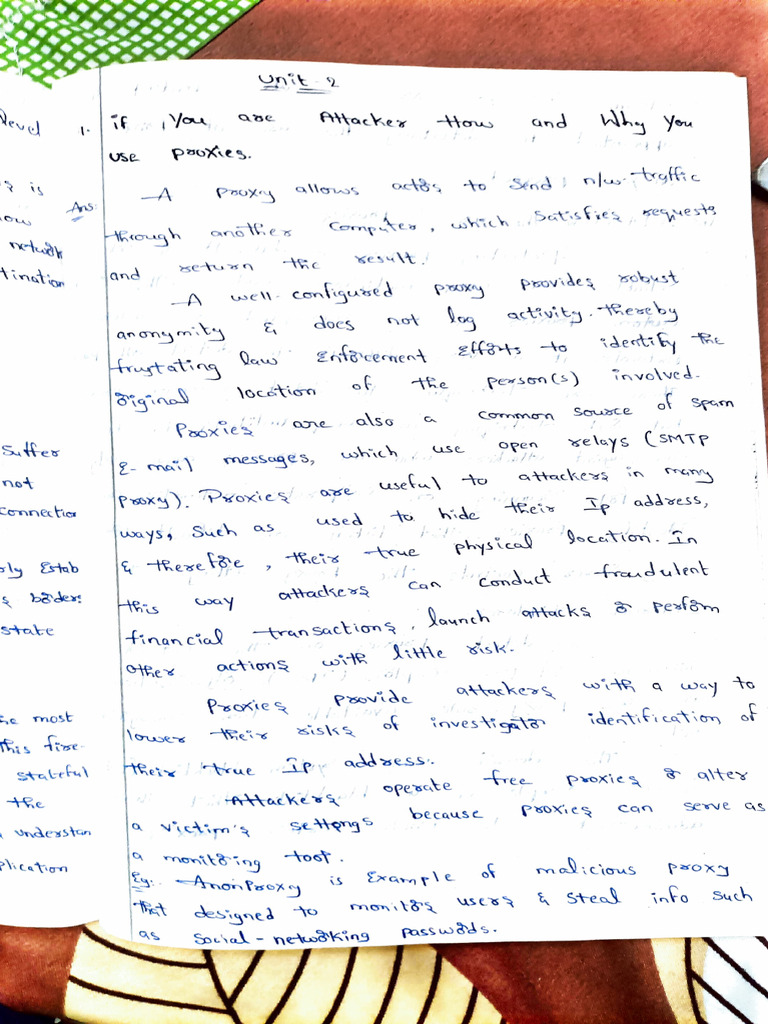 Unit 2
1. if, You are Attacker How and Why You
use proxies.
Ans: - A proxy allows actors to send n/w traffic
through another computer, which satisfies requests
and return the result.
- A well-configured proxy provides robust
anonymity & does not log activity. thereby
frustating law Enforcement Efforts to identify the
original location of the person(s) involved.
Proxies are also a common source of spam
E-mail messages, which use open relays (SMTP
proxy). Proxies are useful to attackers in many
ways, such as used to hide their Ip address,
& therefore, their true physical location. In
this way attackers can conduct fraudulent
financial transactions, launch attacks or perform
other actions with little risk.
Proxies provide attackers with a way to
lower their risks of investigator identification of
their true Ip address.
Attackers operate free proxies or alter
a victim's settongs because proxies can serve as
a monitoring tool.
Eg: AnonProxy is Example of malicious proxy
that designed to monitor users & steal info such
as social-networking passwords.
level
is
now
network
tination
suffer
not
connection
rly Estab
border
state
he most
This fire-
stateful
the
understan
plication